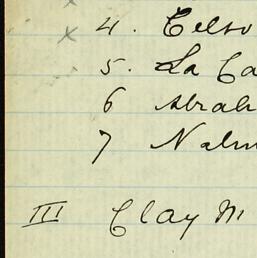 4. Celso
5. La Ca
6 Abrah
7 Nalm
III Clay M